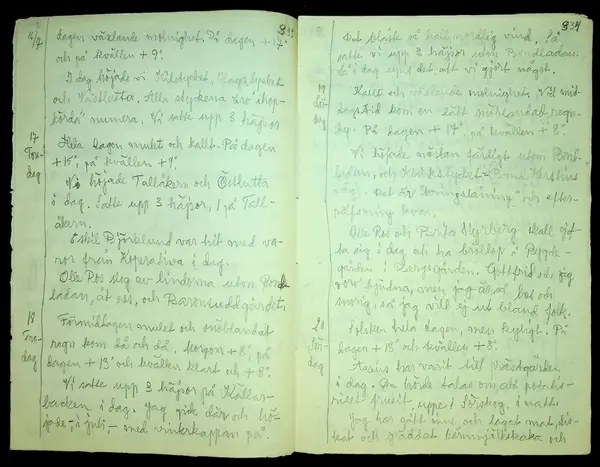 16/7
332
dagen växlande molnighet. På dagen + 17°
och på kvällen + 9°.
I dag höjade vi
och Alla styckena äro ihop-
körda numera. Vi satte upp 3 häjor
17
Tors-
dag
Hela dagen mulet och kallt. På dagen
+ 15°, på kvällen + 9°.
Vi höjade Tallåkern och
i dag. Satte upp 3 häjor, 1 på Tall-
åkern.
Eskil Björklund var hit med va-
ror från Koperativa i dag.
Olle Ros slog av lindorna utom Bond
ladan, åt oss, och
18
Fre-
dag
Förmiddagen mulet och snöblandat
regn kom då och då. Morgon + 8°, på
dagen + 13° och kvällen klart och + 8°.
Vi satte upp 3 häjor på Källar-
backen i dag. Jag gick där och hö-
jade, i juli, – med vinterkappan på.
334
Det blåste så kall nordlig vind. Så
satte vi upp 3 häjor utom Bondladan.
Så i dag syns det att vi gjort något.
19
Lör-
dag
Kallt och växlande molnighet. Vid mid-
dagstid kom en lätt snöblandad regn-
by. På dagen + 14°, på kvällen + 8°.
Vi höjade nästan färdigt utom Bond-
ladan, och
väg). Det är och efter-
kvar.
Olle Ros och Berta Myrberg skall gif-
ta sig i dag och ha bröllop i Bygde-
gården i Bergsgården. Gottfrid och jag
vor bjudna, men jag är så hes och
så jag vill ej ut bland folk.
20
Sön-
dag
Solsken hela dagen, men kyligt. På
dagen + 13° och kvällen + 8°.
har varit till Prästgården
i dag. De hörde talas om att potatis-
riset frusit, uppe i Förskog, i natt.
Jag har gått inne och lagat mat, dis-
kat och gräddat och